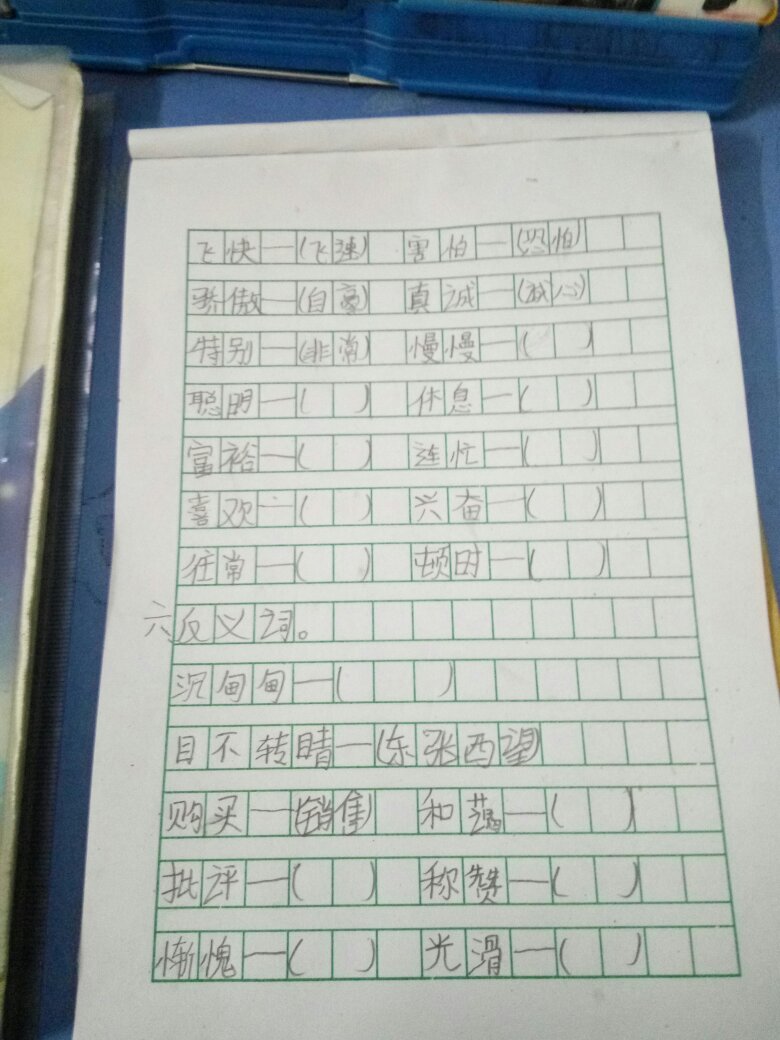 飞快—(飞速) 害怕—(恐怕)
骄傲—(自豪) 真诚—(诚心)
特别—(非常) 慢慢—( )
聪明—( ) 休息—( )
富裕—( ) 连忙—( )
喜欢—( ) 兴奋—( )
往常—( ) 顿时—( )
六 反义词。
沉甸甸—( )
目不转睛—(东张西望)
购买—(销售) 和蔼—( )
批评—( ) 称赞—( )
惭愧—( ) 光滑—( )